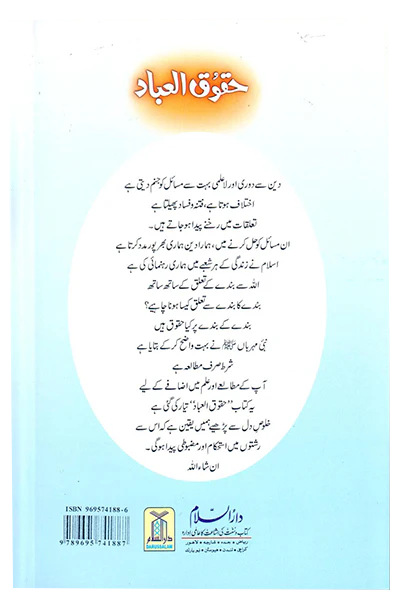 حقوق العباد
دین سے دوری اور لاعلمی بہت سے مسائل کو جنم دیتی ہے
اختلاف ہوتا ہے، فتنہ و فساد پھیلتا ہے
تعلقات میں رخنے پیدا ہو جاتے ہیں۔
ان مسائل کو حل کرنے میں، ہمارا دین ہماری بھرپور مدد کرتا ہے
اسلام نے زندگی کے ہر شعبے میں ہماری رہنمائی کی ہے
اللہ سے بندے کے تعلق کے ساتھ ساتھ
بندے کا بندے سے تعلق کیسا ہونا چاہیے؟
بندے کے بندے پر کیا حقوق ہیں
نبی مہرباں ﷺ نے بہت واضح کر کے بتایا ہے
شرط صرف مطالعہ ہے
آپ کے مطالعے اور علم میں اضافے کے لیے
یہ کتاب "حقوق العباد" تیار کی گئی ہے
خلوص دل سے پڑھیے ہمیں یقین ہے کہ اس سے
رشتوں میں استحکام اور مضبوطی پیدا ہوگی۔
ان شاء اللہ
ISBN 969574188-6
9 789695 741887
دارالسلام
DARUSSALAM
دارالسلام
کتاب و سنت کی اشاعت کا عالمی ادارہ
ریاض • جدہ • شارجہ • لاہور
کراچی • لندن • ہیوسٹن • نیویارک